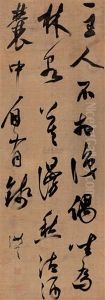 主人不相識偶坐為
林泉莫謾愁沽酒
囊中自有錢